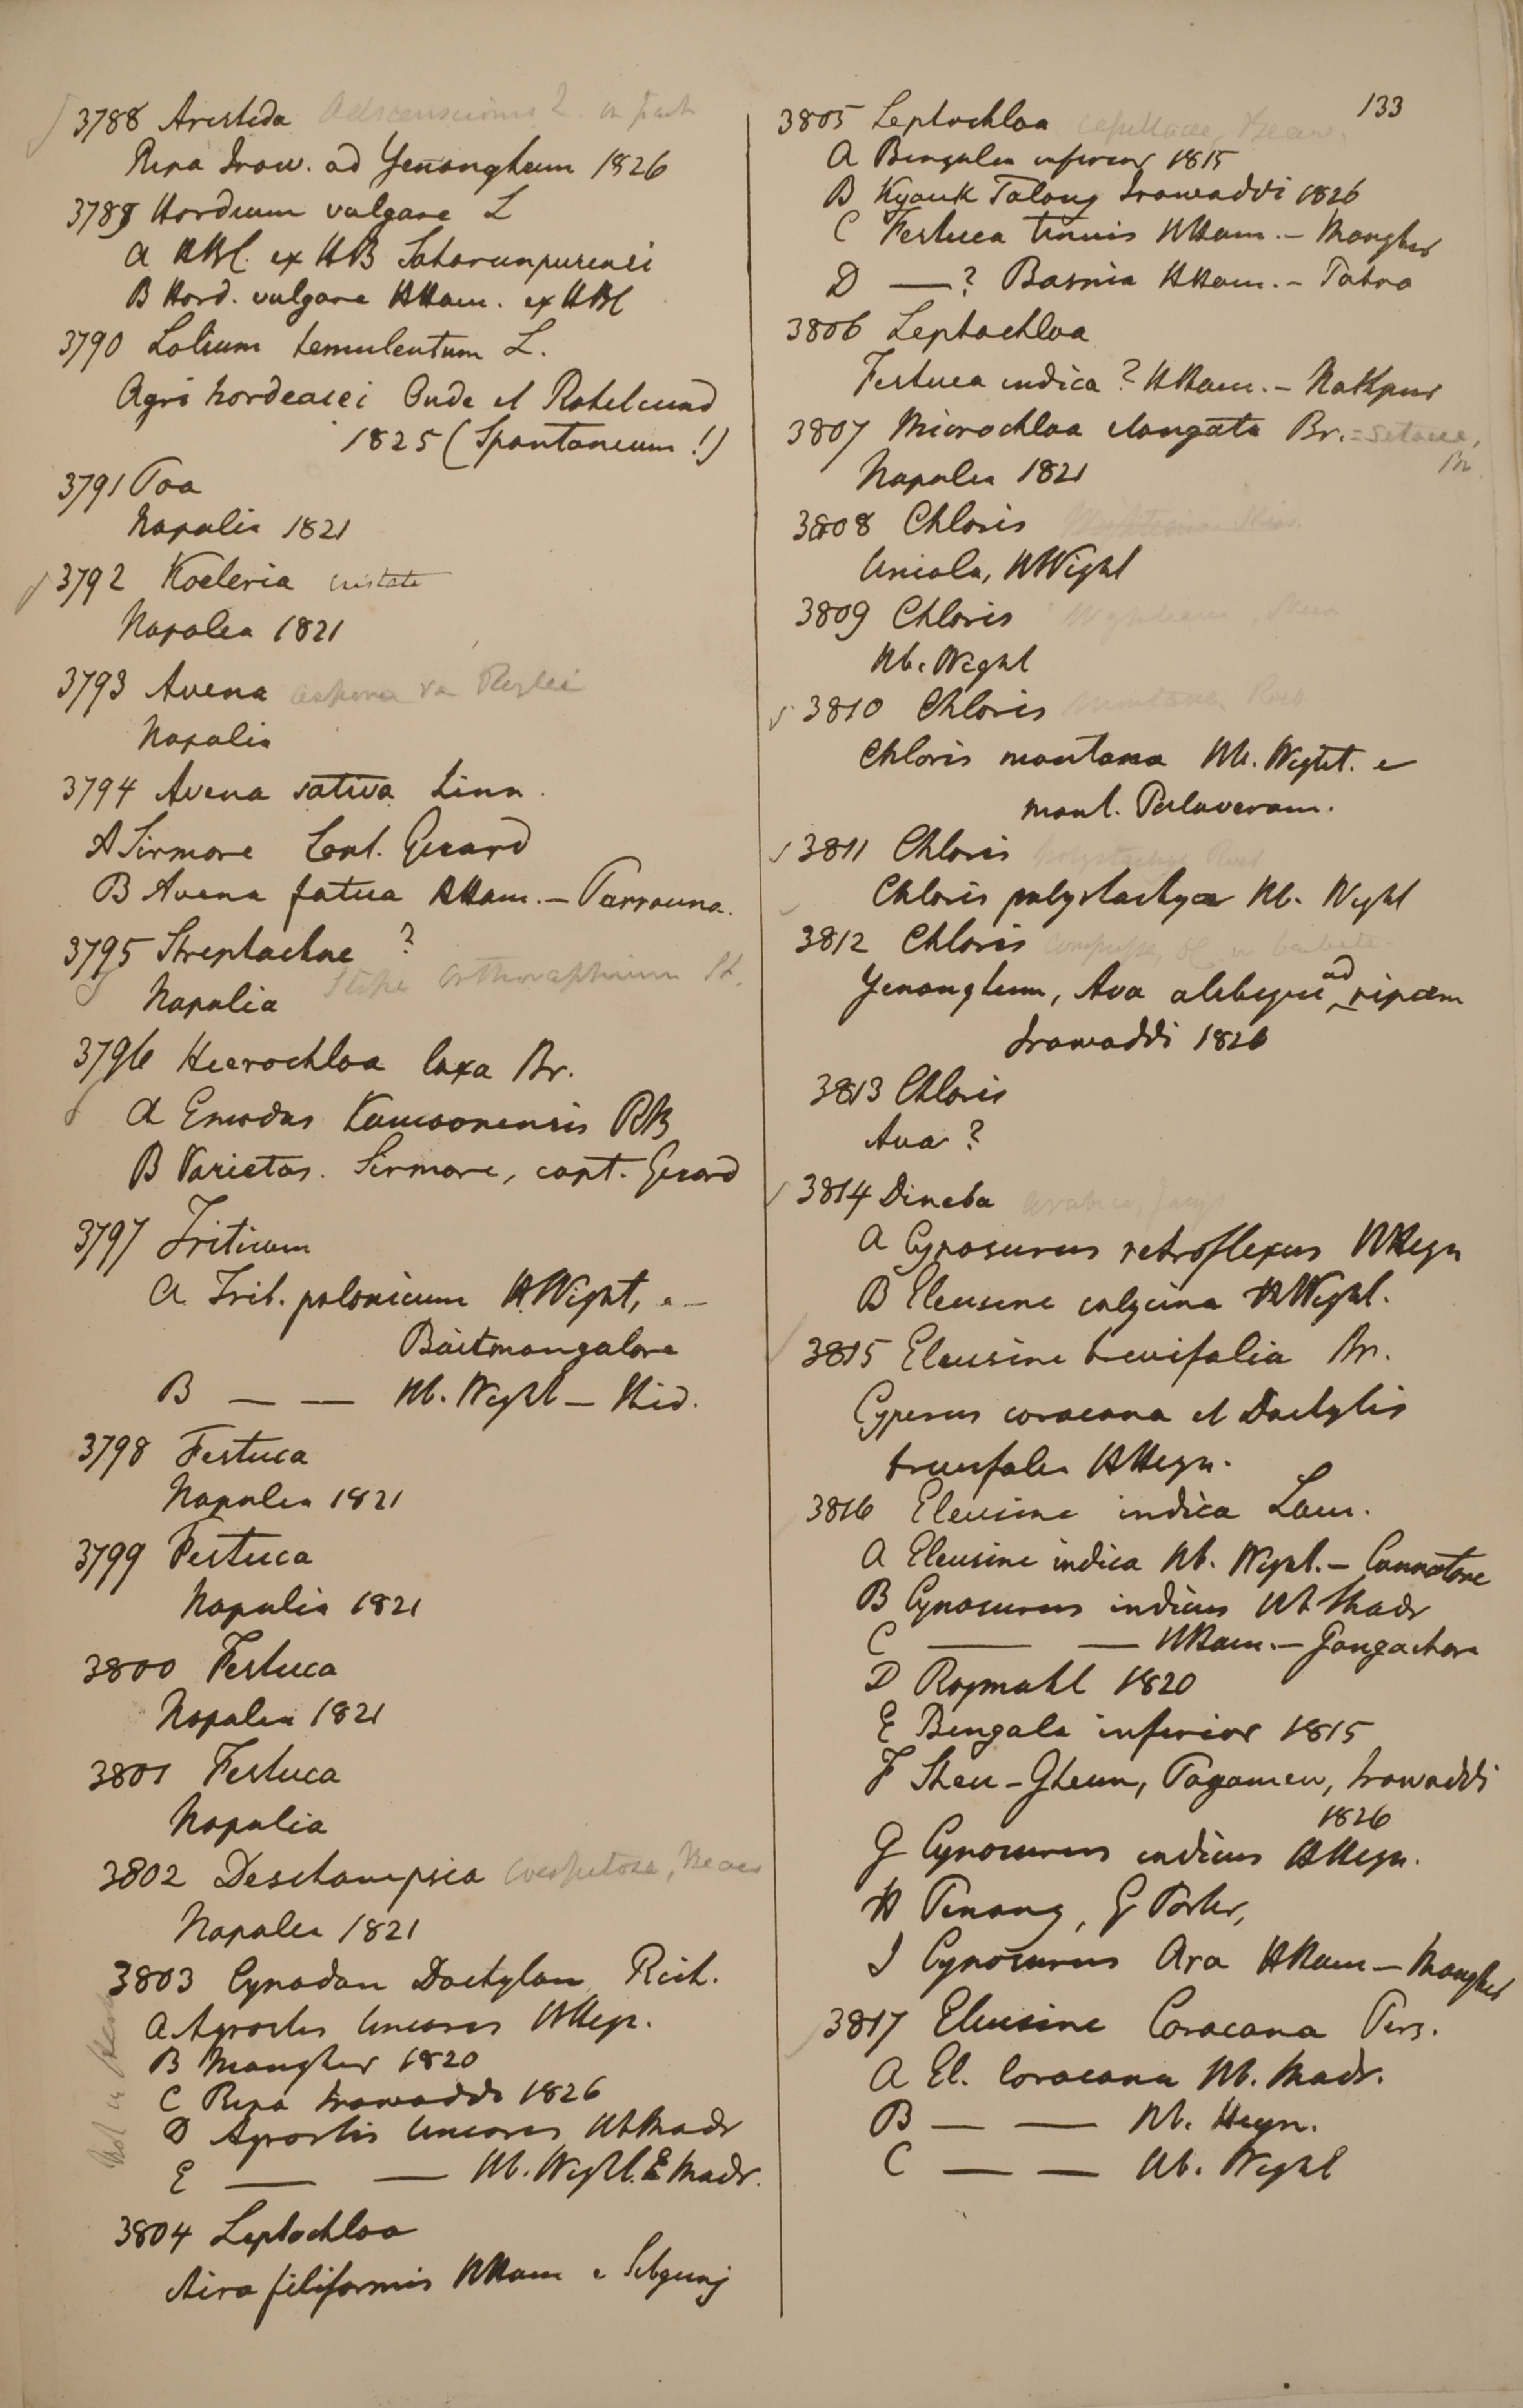 133
3788 Aristida Adscensionis L. in part
Ripa Iraw. ad Yenangheum 1826
3789 Hordeum vulgare L
A HBC. ex HB Saharunpurensi
B Hord. vulgare HHam. ex HBC
3790 Lolium temulentum L.
Agri hordeacei Oude et Rohilcund
1825 (Spontaneum!)
3791 Poa
Napalia 1821
3792 Koeleria cristata
Napalia 1821
3793 Avena aspera va
Napalia
3794 Avena sativa Linn.
A Sirmore Capt. Gerard
B Avena fatua HHam. —
3795 Streptachne ?
Stipa
Napalia
3796 Hierochloa laxa Br.
A Emodus Kamoonensis RB
B Varietas. Sirmore, capt. Gerard
3797 Triticum
A Trit. polonicum HWight, e
Baitmangalore
B — — Hb. Wight — Ibid.
3798 Festuca
Napalia 1821
3799 Festuca
Napalia 1821
3800 Festuca
Napalia 1821
3801 Festuca
Napalia
3802 Deschampsia caespitosa, Beauv
Napalia 1821
3803 Cynodon Dactylon Rich.
A Agrostis linearis HHeyn.
B Mongher 1820
C Ripa Irawaddi 1826
D Agrostis linearis Hb Madr
E — — Hb. Wight. E Madr.
Not in
3804 Leptochloa
Aira filiformis HHam e
3805 Leptochloa capillacea, Beauv.
A Bengalia inferior 1815
B Kyouk Talong Irawaddi 1826
C Festuca tenuis HHam. — Mongher
D — ? Basnia HHam. —
3806 Leptochloa
Festuca indica ? HHam. — Nathpur
3807 Microchloa elongata Br. = setacea,
Br
Napalia 1821
3808 Chloris
Uniola, HWight
3809 Chloris
Hb. Wight
3810 Chloris montana Roxb.
Chloris montana Hb. Wight. e
mont. Palaveram.
3811 Chloris polystachya Roxb
Chloris polystachya Hb. Wight
3812 Chloris
Yenangheum, Ava alibique ad ripam
Irawaddi 1826
3813 Chloris
Ava ?
3814 Dineba arabica, Jacq
A Cynosurus retroflexus HHeyn
B Eleusine calycina HWight.
3815 Eleusine brevifolia Br.
Cyperus coracana et Dactylis
brevifolia HHeyn.
3816 Eleusine indica Lam.
A Eleusine indica Hb. Wight. —
B Cynosurus indicus Hb Madr
C — — HHam. — Gongachora
D Rajmahl 1820
E Bengala inferior 1815
F Sheu-Gheun, Pagamew, Irawaddi
1826
G Cynosurus indicus HHeyn.
H Penang, G Porter,
I Cynosurus Ara HHam — Mongher
3817 Eleusine Coracana Pers.
A El. Coracana Hb. Madr.
B — — Hb. Heyn.
C — — Hb. Wight